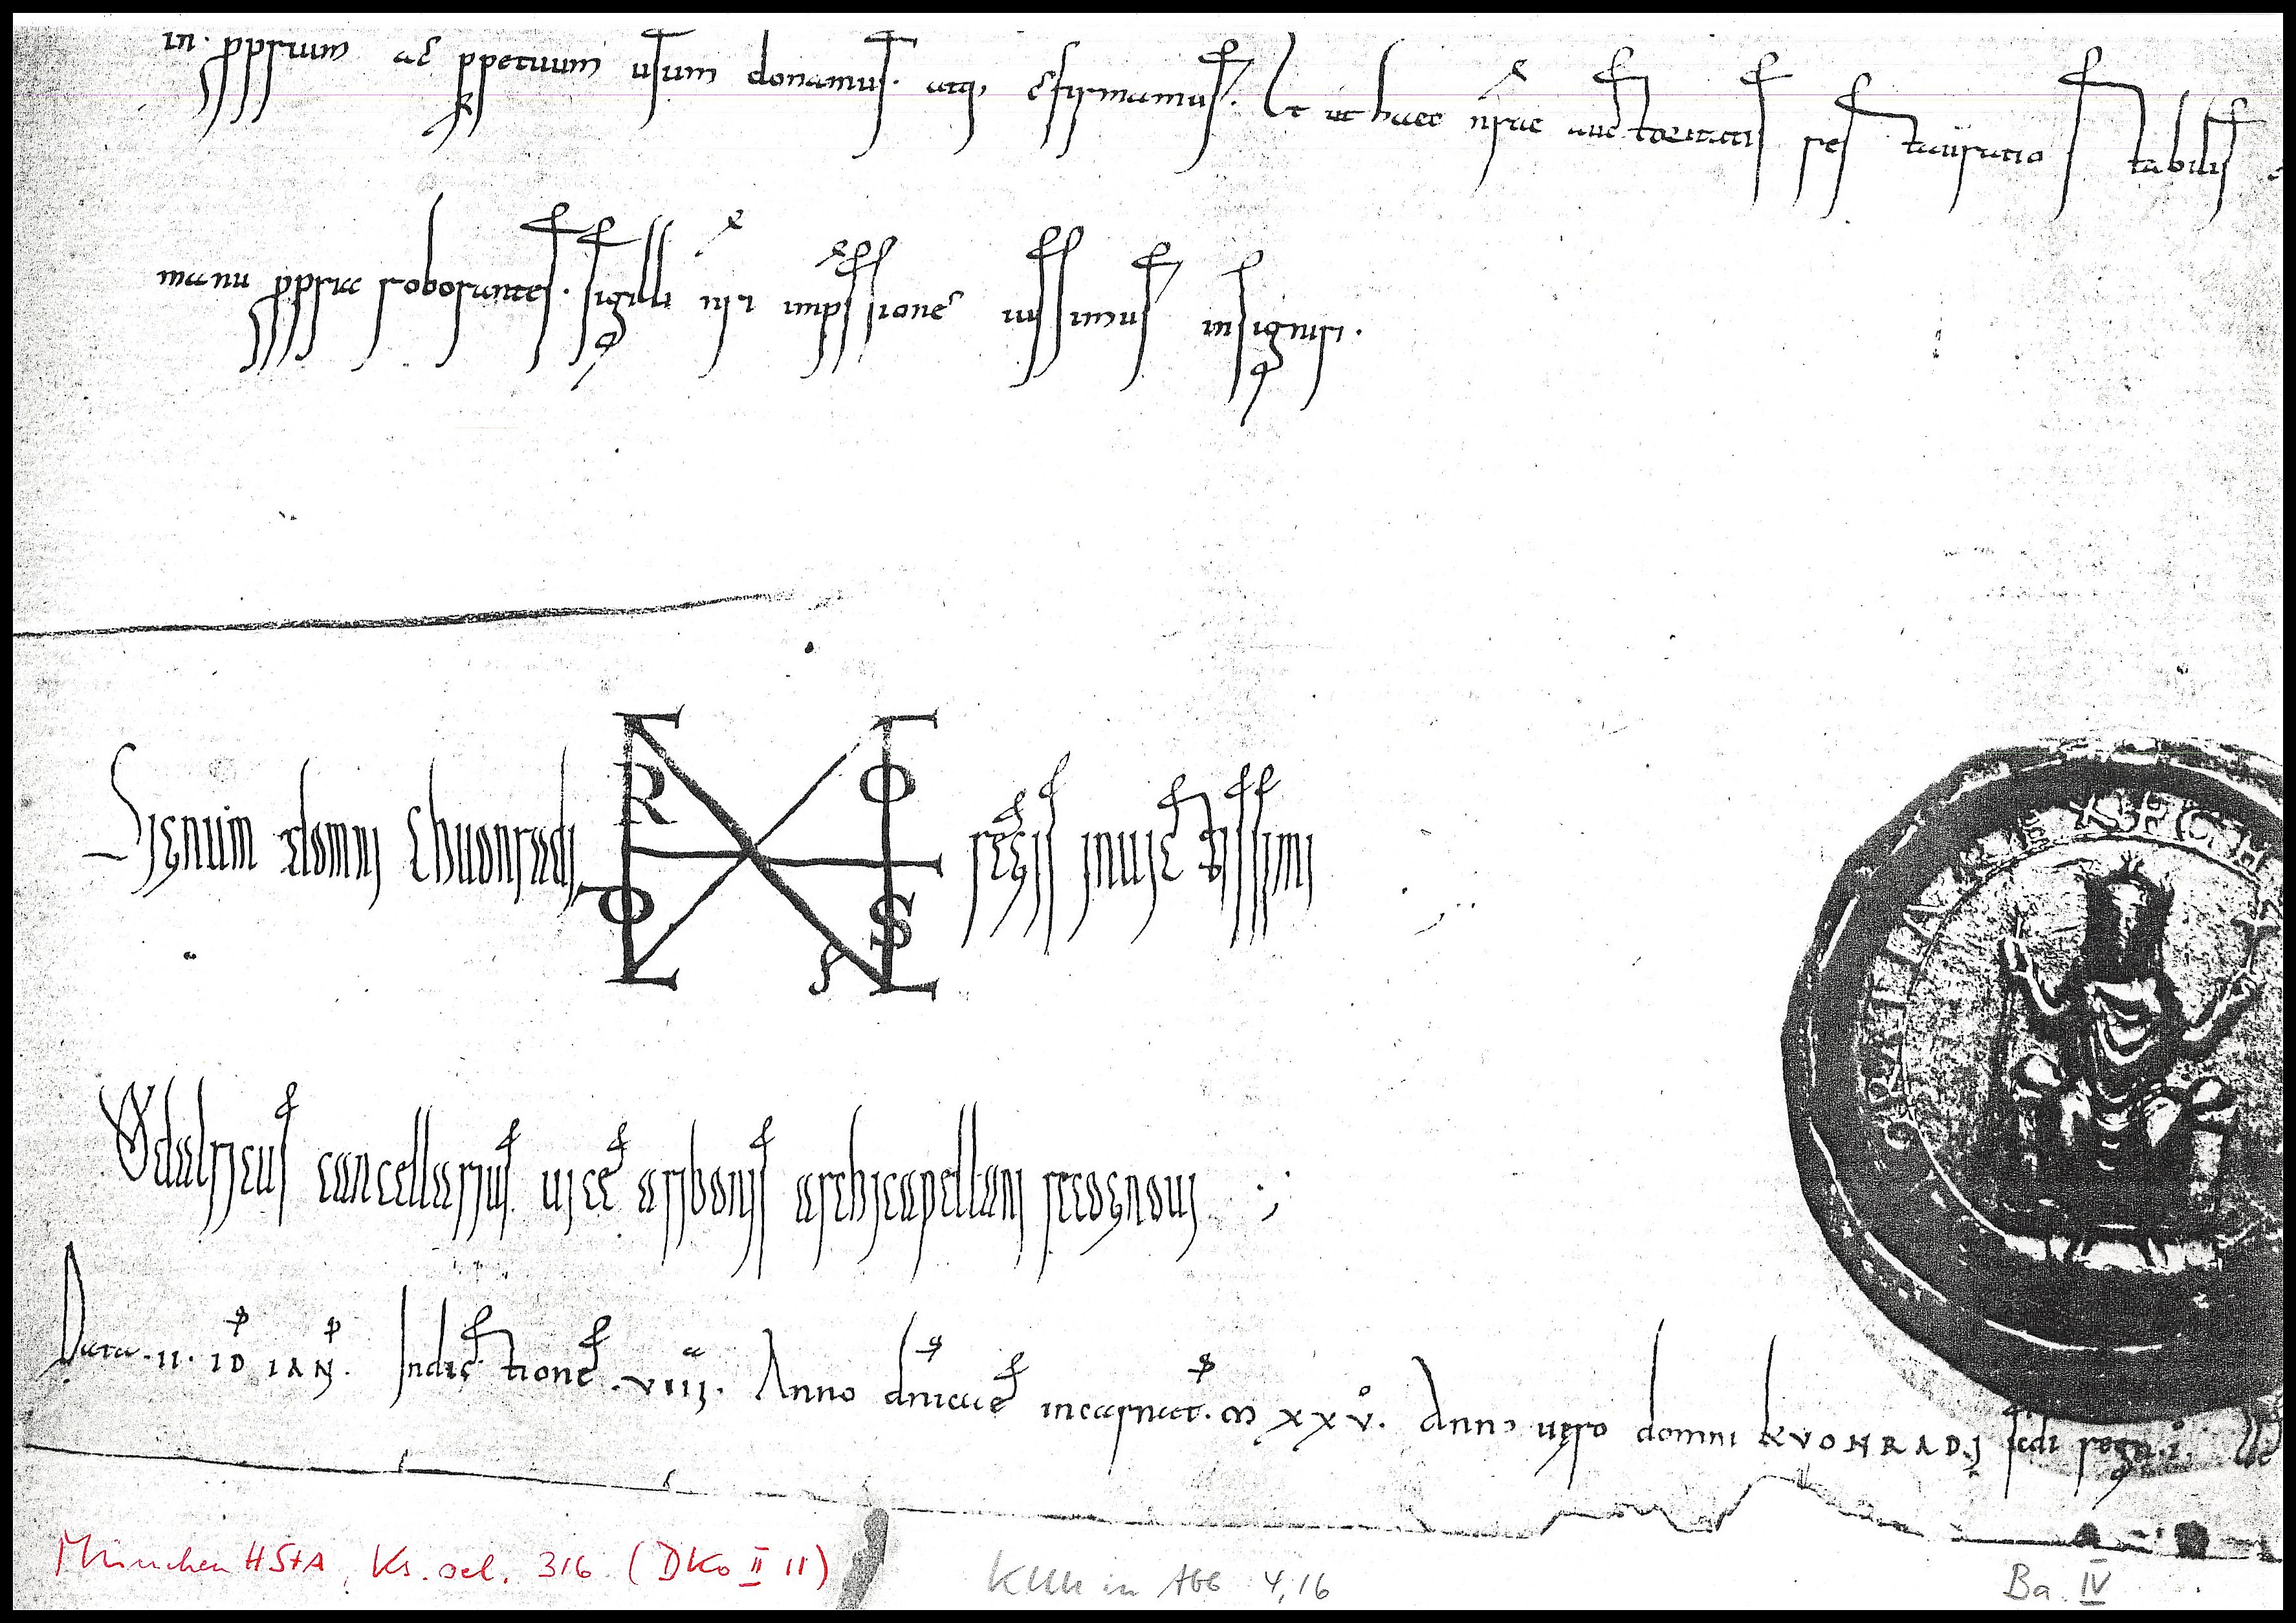 in pp̱rium ac̄ ppetuum usum donamus. atq; c̄firmamus. Et ut haec nr̄ae auctoritatis restauratio stabilis
manu pp̱ria roborantes. sigilli nr̄i imp̄ssione iussimus insigniri.
Signum domni Chuonradi regis inuictissimi
R O O S
Odalricus cancellarius uice aribonis archicapellani recognoui
Data .II. ID IAN̄. Indictione .VIII. Anno dn̄icae incarnat̄. M XXV. Anno uero domni KVONRADI scdi regn.
München HStA, Ks. sel. 316 (DKo II 11)
KUU in Abb 4,16
Ba. IV